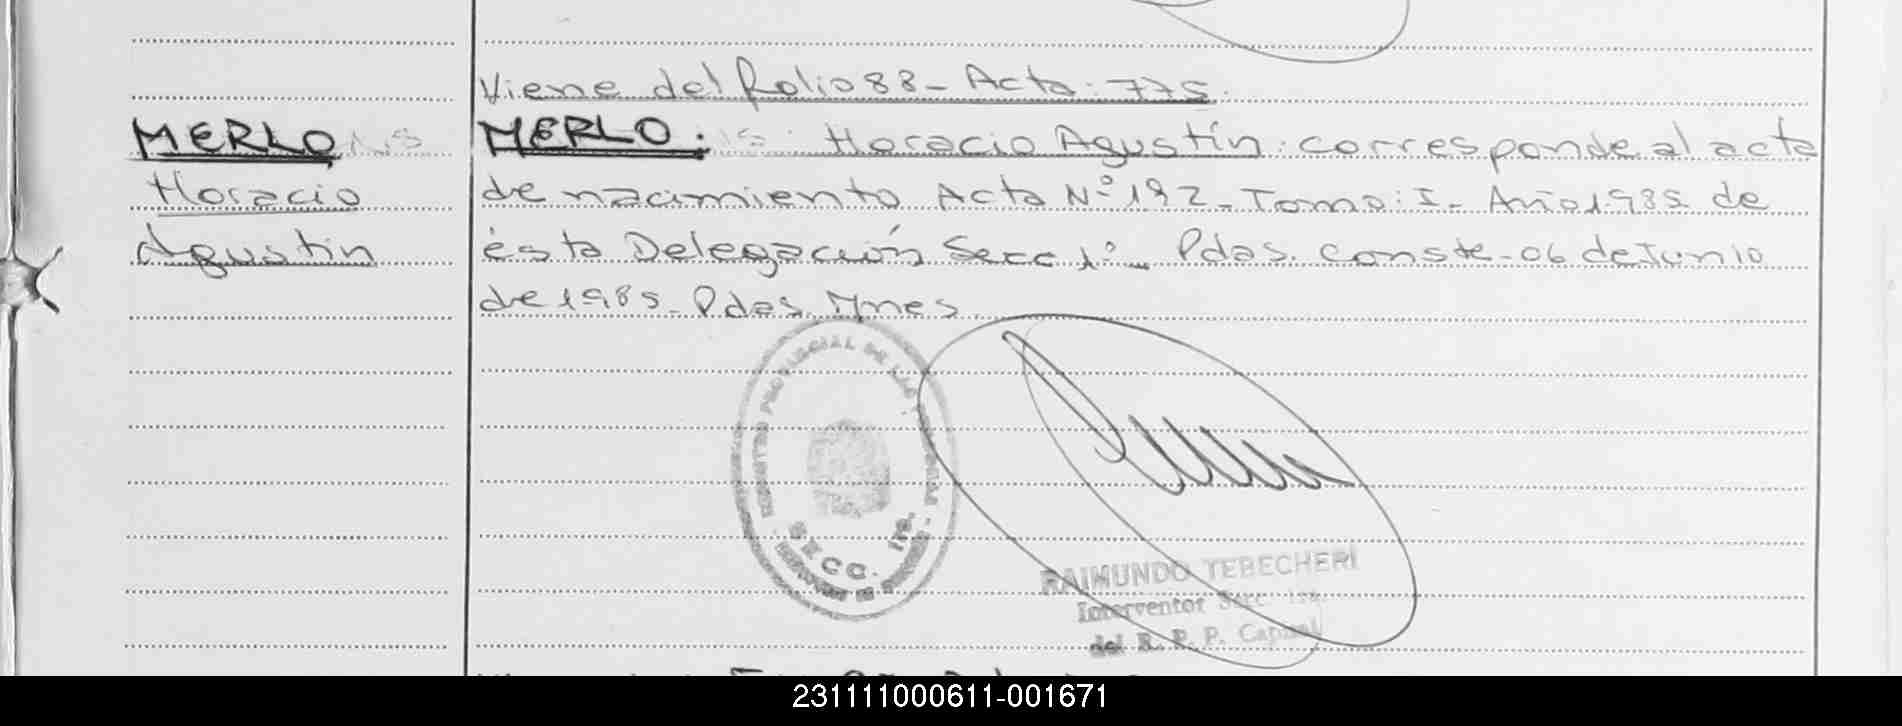 Viene del folio 88- Acta: 775.
MERLO
MERLO: Horacio Agustín: corresponde al acta
Horacio
de nacimiento Acta Nº 192- Tomo: I- Año 1985 de
Agustín
ésta Delegación Secc 1º- Pdas. Conste- 06 de Junio
de 1985- Pdas.
REGISTRO PROVINCIAL DE LAS PERSONAS
SECC. 1ra.
RAIMUNDO TEBECHERI
Interventor Secc. 1ra.
del R. P. P. Capital
231111000611-001671